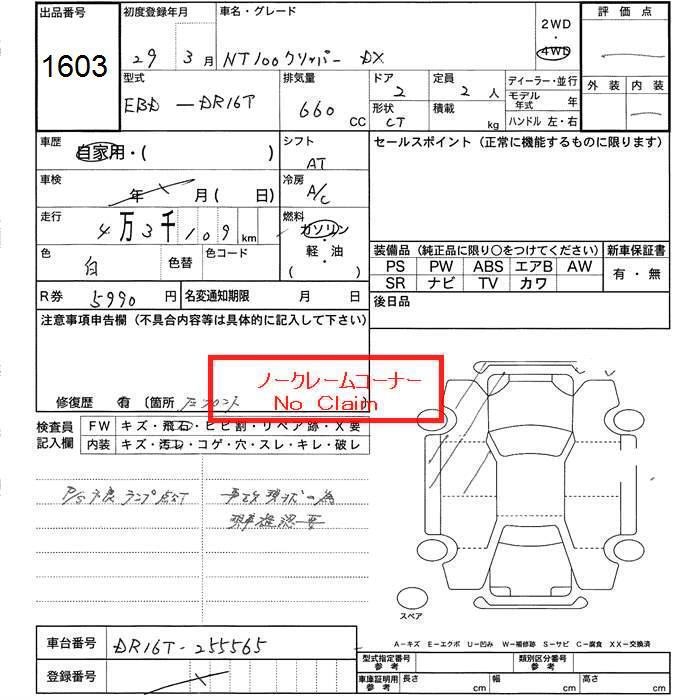 出品番号 初度登録年月 車名・グレード 2WD・4WD 評価点
1603 29 3月 NT100クリッパー DX
型式 排気量 ドア 定員 ディーラー・並行 外装 内装
EBD-DR16T 660 CC 2 2人 モデル年式 年
形状 積載 ハンドル 左・右
CT kg
車歴 自家用・( ) シフト セールスポイント (正常に機能するものに限ります)
AT
車検 年 月( 日) 冷房
A/C
走行 4万3千109km 燃料
ガソリン・軽・油
( )
色 白 色替 色コード
装備品 (純正品に限り○をつけてください) 新車保証書
PS PW ABS エアB AW 有・無
SR ナビ TV カワ
R券 5990円 名変通知期限 月 日 後日品
注意事項申告欄 (不具合内容等は具体的に記入して下さい)
ノークレームコーナー
No Claim
修復歴 有 〔箇所 フロント
検査員記入欄 FW キズ・飛石・ヒビ割・リペア跡・X要
内装 キズ・汚れ・コゲ・穴・スレ・キレ・破レ
P/S不良 ランプ点灯 事故現状の為
現車確認要
スペア
A-キズ E-エクボ U-凹み W-補修跡 S-サビ C-腐食 XX-交換済
車台番号 DR16T-255565
型式指定番号 参考 類別区分番号 参考
登録番号
車庫証明用 参考 長さ cm 幅 cm 高さ cm